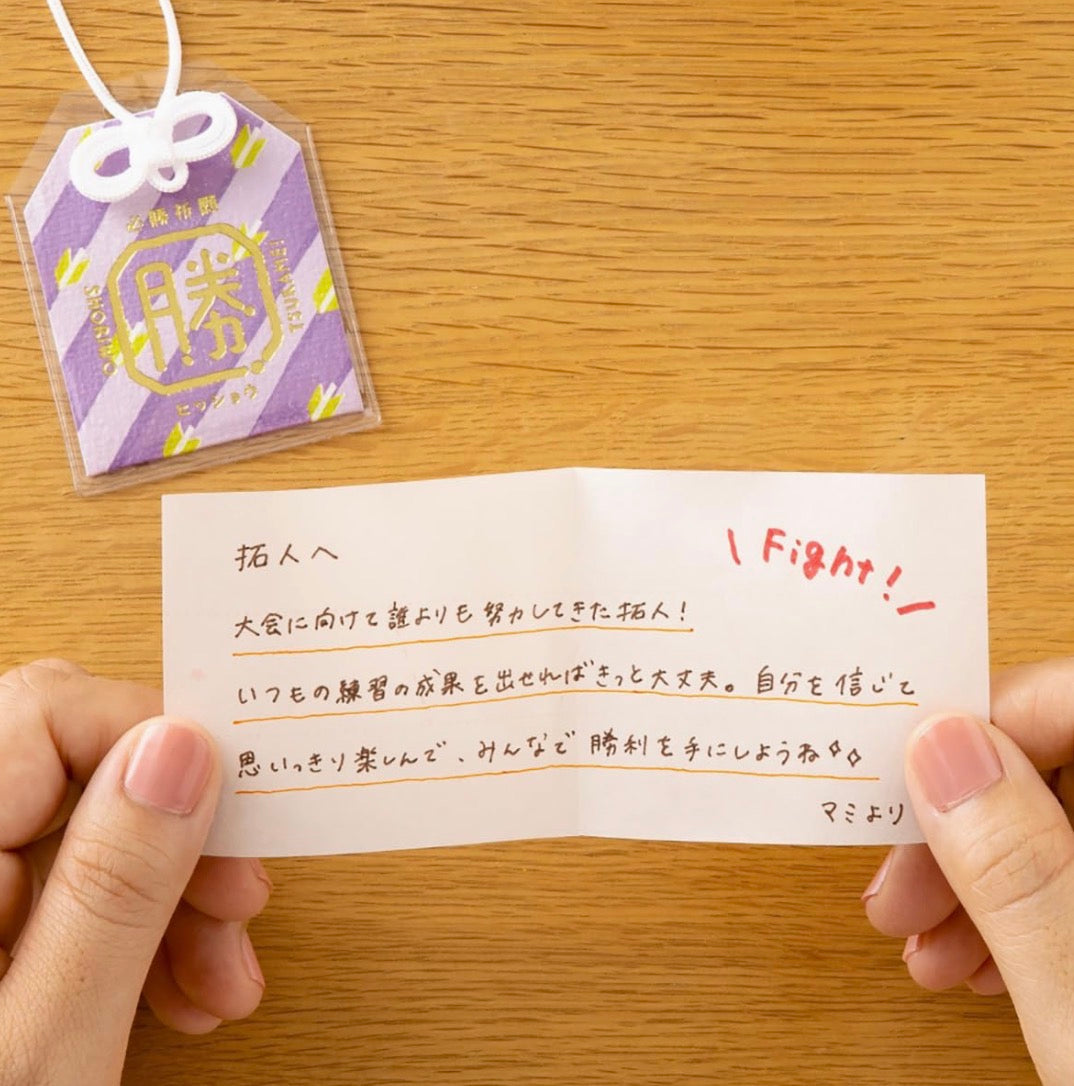 必勝祈願
勝
SHORIPPO
TSUKAMEI
ヒッショウ
拓人へ
\ Fight! /
大会に向けて誰よりも努力してきた拓人!
いつもの練習の成果を出せればきっと大丈夫。自分を信じて
思いっきり楽しんで、みんなで勝利を手にしようね✧✧
マミより